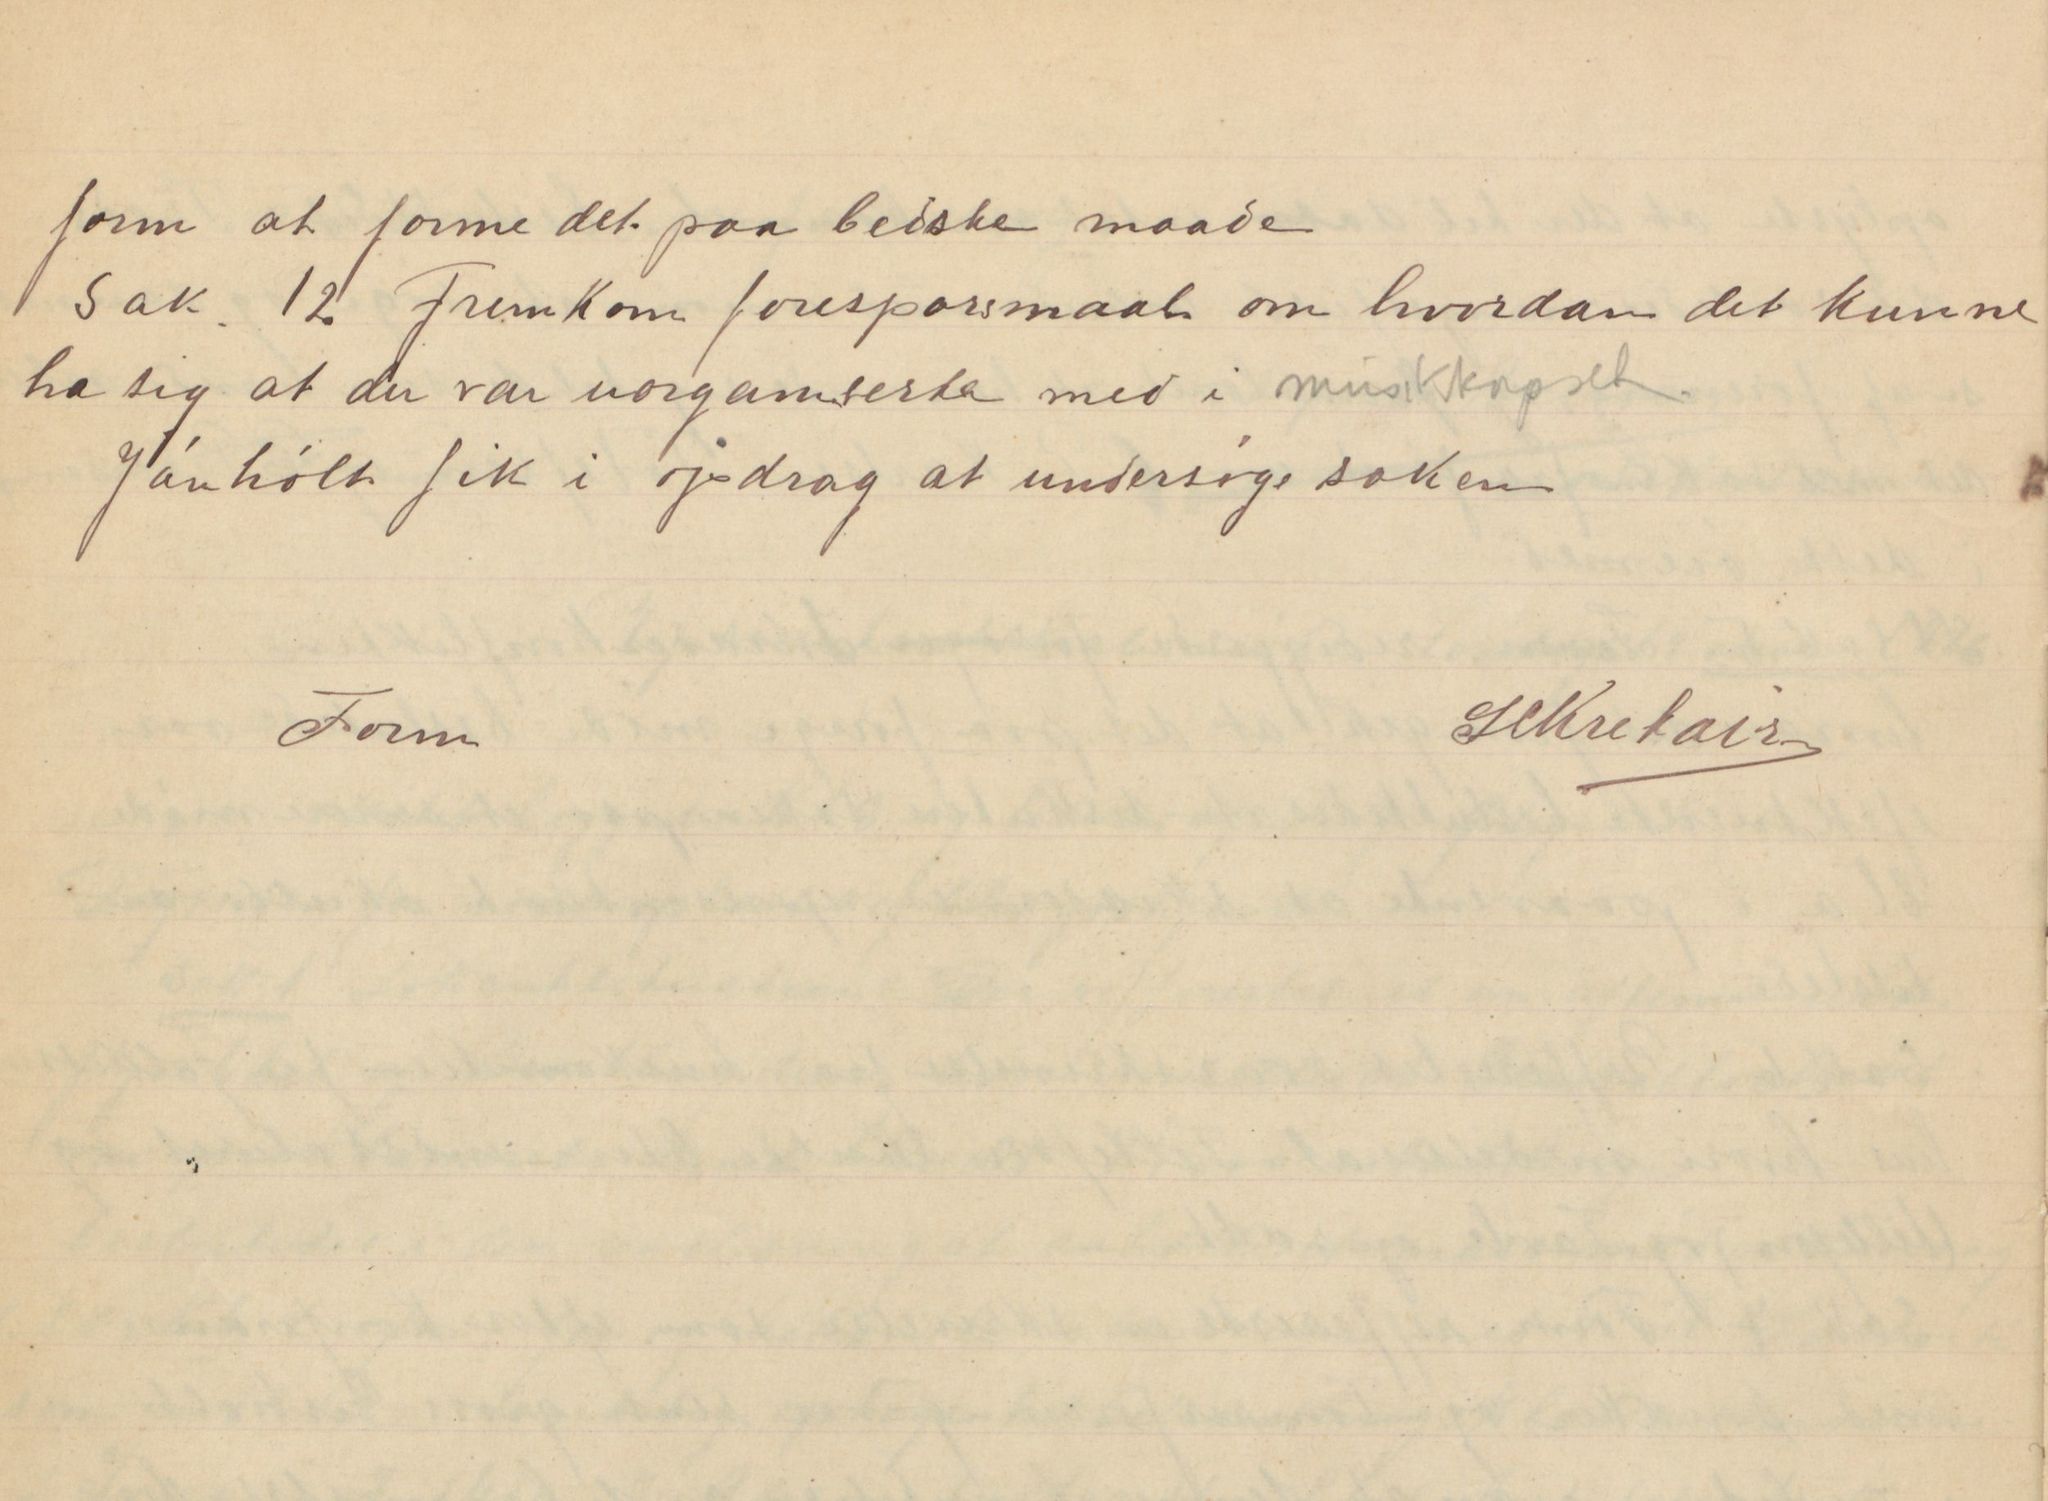 form at forme det paa bedste maade
Sak. 12 Fremkom forespørsmaal om hvordan det kunne
ha sig at der var uorganiserte med i musikkorpset.
fik i opdrag at undersøge saken
Form Sekretair